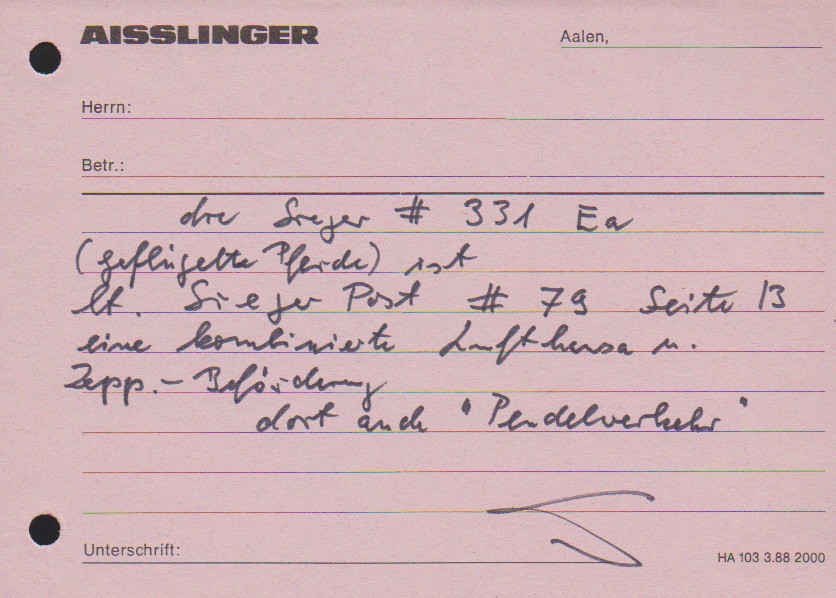 AISSLINGER
Aalen,
Herrn:
Betr.:
die Sieger # 331 Ea
(geflügelte Pferde) ist
lt. Sieger Post # 79 Seite 13
eine kombinierte Lufthansa u.
Zepp.- Beförderung
dort auch "Pendelverkehr"
Unterschrift:
HA 103 3.88 2000